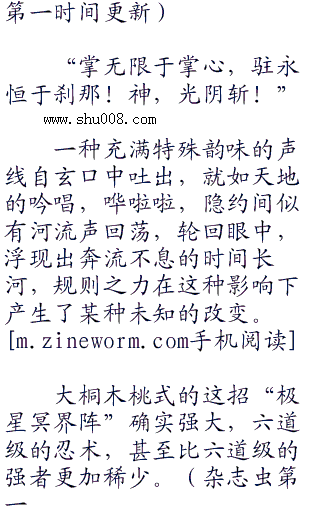 第一时间更新）
“掌无限于掌心，驻永
恒于刹那！神，光阴斩！”
www.shu008.com
一种充满特殊韵味的声
线自玄口中吐出，就如天地
的吟唱，哗啦啦，隐约间似
有河流声回荡，轮回眼中，
浮现出奔流不息的时间长
河，规则之力在这种影响下
产生了某种未知的改变。
[m.zineworm.com手机阅读]
大桐木桃式的这招“极
星冥界阵”确实强大，六道
级的忍术，甚至比六道级的
强者更加稀少。（杂志虫第
一